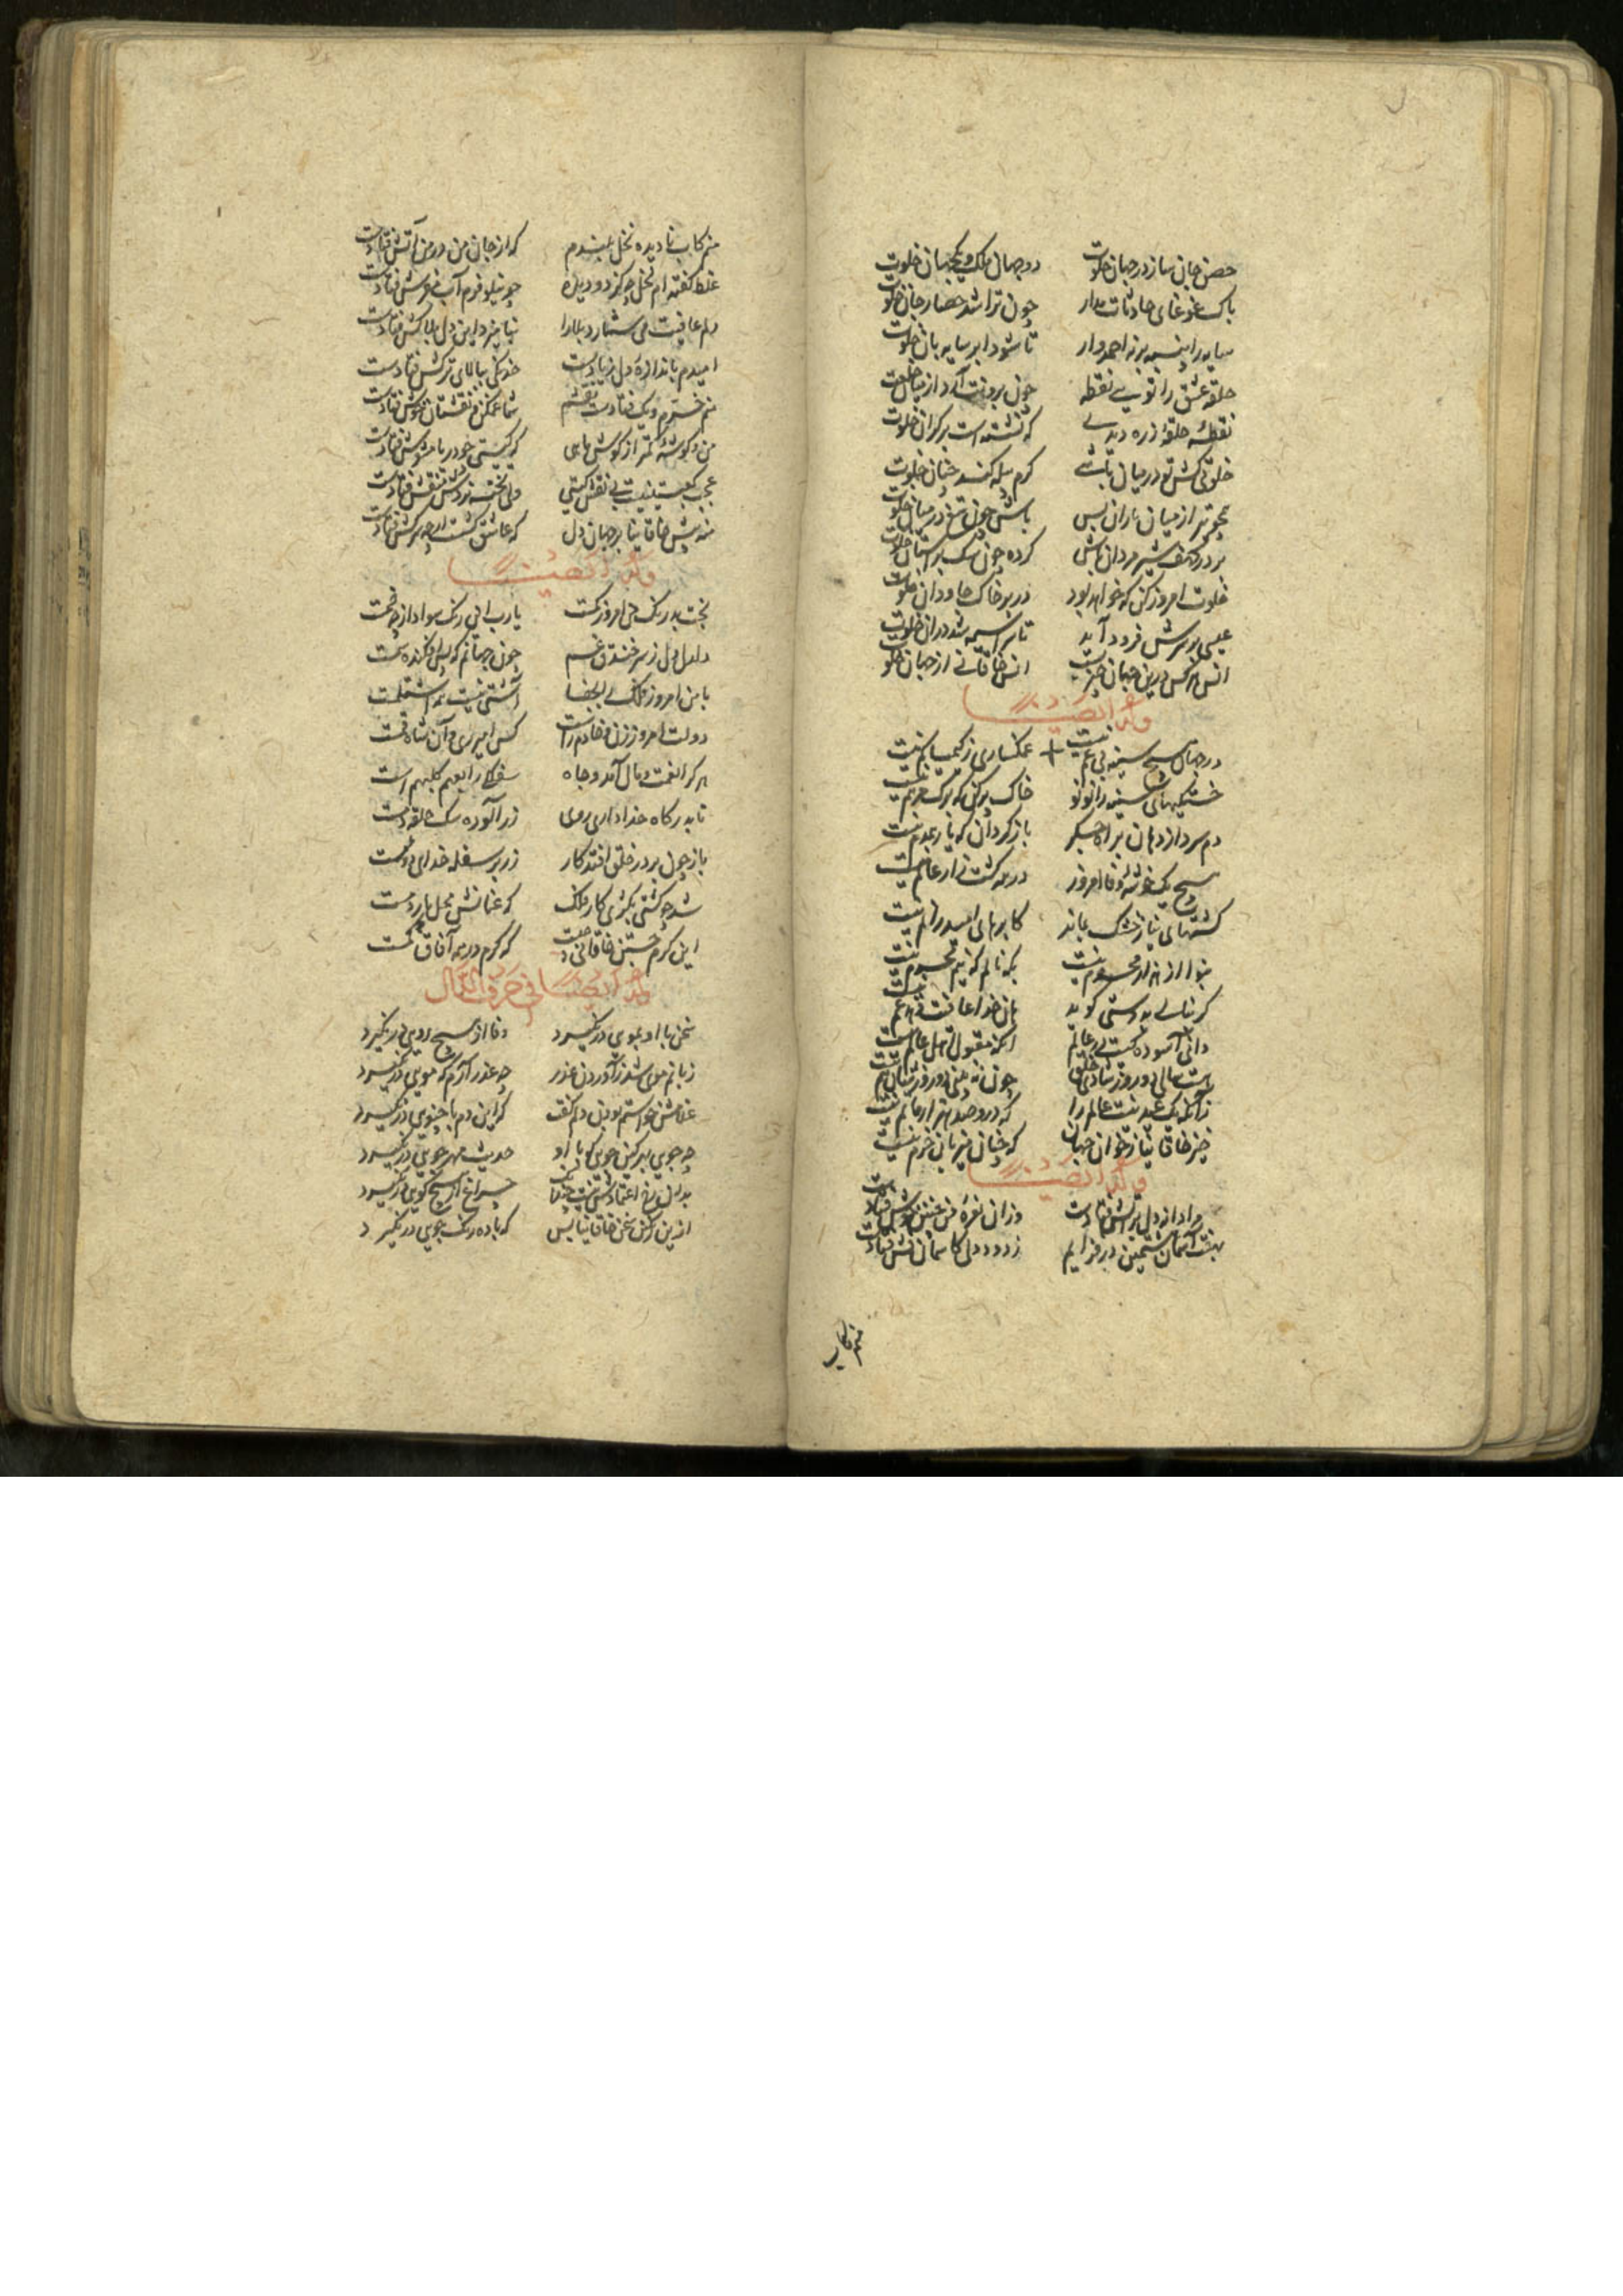 حصن جان ساز در جهان خلوت دو جهان ملک و یکجهان خلوت
باک غوغای حادثات مدار چون ترا شد حصار جان خلوت
سایه را پنبه برنه احمدوار تا شود ابر سایه بان خلوت
حلقه عشق را تویی نقطه چون برونت آرد از میان خلوت
نقطه حلقه زره دیدی که نشسته است بر کران خلوت
خلوتی کش تو در میان باشی کرم پیله کند چنان خلوت
همچو تیر از میان یاران بس باش چون تیغ در میان خلوت
بر در کهف شیر مردان باش کرده چون سگ بر آستان خلوت
خلوت امروز کن که خواهد بود در بر خاک جاودان خلوت
عیسی بر سرش فرود آید تا سراسیمه شد دران خلوت
انس هر کس درین جهان چیزیست انس خاقانی از جهان خلوت
وله ایضا
در جهان هیچ سینه بی غم نیست غمگساری ز کیمیا کم نیست
خستگیهای سینه را نونو خاک پر کن که برگ مرهم نیست
دم سرد از دهان بر آه جگر باز گردان که یار همدم نیست
هیچ یک خوشه وفا امروز در همه کشت زار عالم نیست
کشتهای نیاز خشک بماند کابرهای امید را نم نیست
بنوا از هزار محرومیست بکه نالم که نیم محرم نیست
گر بنالی به دوستی گوید هان خدا عافیت دهد غم نیست
دانی آسوده کیست در عالم آنکه مقبول اهل عالم نیست
هست سالی دو روز شادی خلق چون نه بینی دو روز شادی هم نیست
زانکه یک عید نیست عالم را که درو صد هزار ماتم نیست
خیز خاقانیا ز خوان جهان که جهان میزبان خرم نیست
وله ایضا
مرا داز دل بر آتش فتادست وزان نعره من عشش خوش فتادست
بهفت آسمان هشتمین در فزایم ز دود دلی کاسمان نش فتادست
منم کاب
منم کاب نادیده نخل بلندم که از جان من در من آتش فتادست
غلط گفته ام نخل چه کز دو دیده چو نیلوفرم آب مفرش فتادست
دلم عافیت می شمارد بلا را بنامیزد این دل بلاکش فتادست
امیدم باندازه دل زیادست خدنگی ببالای ترکش فتادست
منم خسروم ویک فتادست نقشم شما عمکنم نقشتان خوش فتادست
من و گوشه کمتر از گوش ماهی که گیتی چو دریا مشوش فتادست
عجب کیست نیست بی نقش گیتی ولی تخته نردش منقش فتادست
منه پیش خاقانیا بر جهان دل که عاشق کشست ارچه سرکش فتادست
وله ایضا
بخت بد رنگ من امروز گمست یارب این رنگ سواد از چه خمست
دلدل دل ز سر خندق غم چون جهانم که بس افکنده سمست
با من امروز فلک را بجفا آشتی نیست همه اشتلمست
دولت امروز زن و خادم راست کس امیر ری و آن شاه قمست
هر کرا نعمت و مال آمد و جاه سفرهٔ رابعهم کلبهم است
تا بدرگاه خدا داری روی زر آلوده سگ حلقه دمست
باز چون بر در خلق افتد کار زر پر سفله خدای دومست
شد چو کشتی بکژی کار فلک که عنانش محل پاردمست
این کرم جستن خاقانی چیست که کرم در همه آفاق گمست
وله ایضا فی حرف الدال
سخن با او بمویی در نگیرد وفا از هیچ رویی در نگیرد
زبانم موی شد ز آوردن عذر چه عذر آرم که مویی در نگیرد
غلامش خواستم بودن دلم گفت که این دم با چنویی در نگیرد
چه جویی مهر کین جویی که با او حدیث مهر جویی در نگیرد
بدان رویم اعتماد هستی نیست چنان چراغ از هیچ کویی در نگیرد
ازین رنگین سخن خاقانیا بس که با ده رنگ جویی در نگیرد